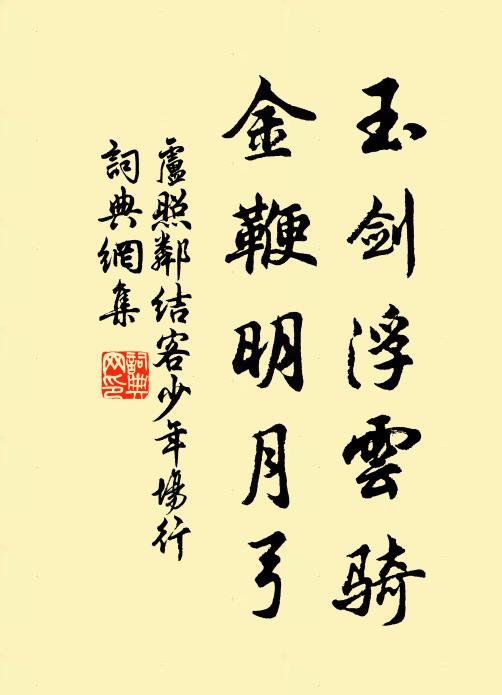 玉剑浮雲骑
金鞭明月弓
盧照鄰结客少年場行
詞典網集
詞典网印